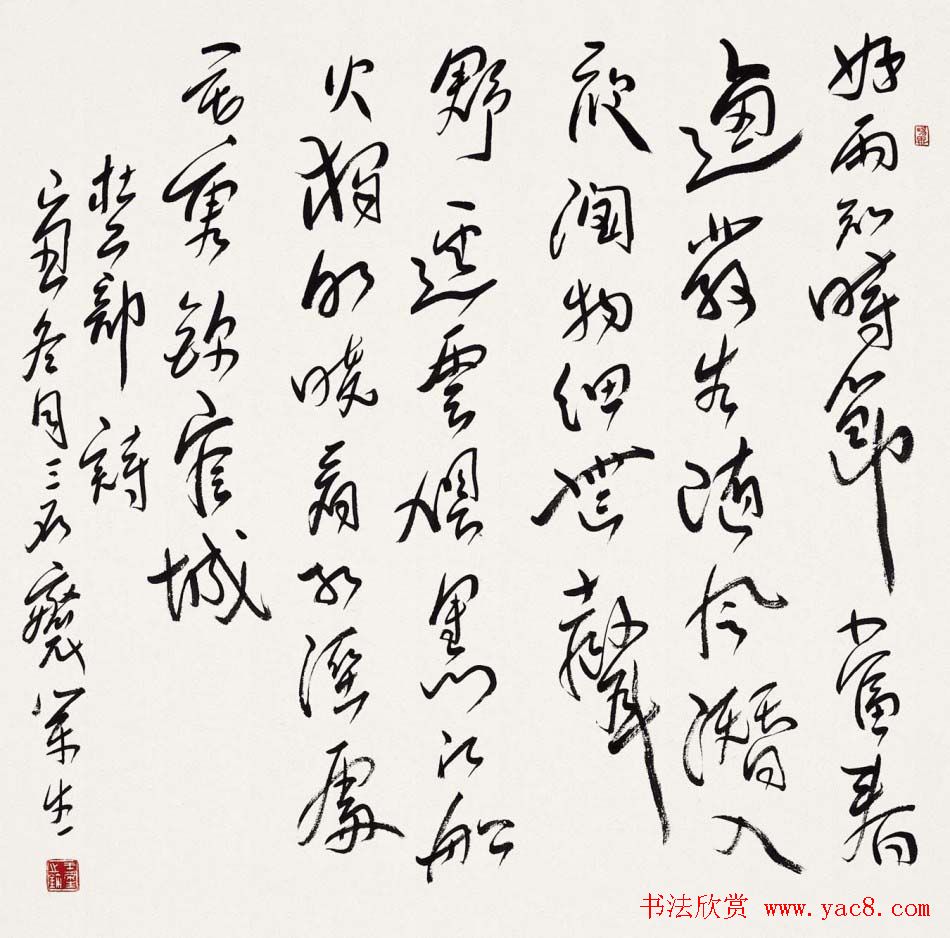 好雨知時節當春
迺發生隨風潛入
夜潤物細無聲
野逕雲俱黑江船
火獨明曉看紅溼處
花重錦官城
杜工部詩
丑冬月三石
书法欣赏 www.yac8.com